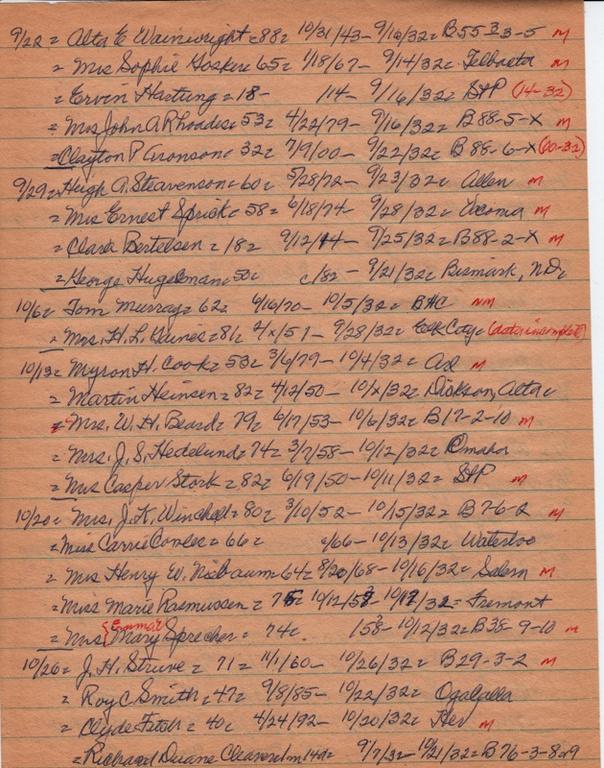 9/22 = Alta E Wainwright = 88 = 10/31/43 - 9/16/32 = B55 3 3-5 M
= Mrs Sophie Hosker = 65 = 1/18/67 - 9/14/32 = Telbasta M
= Ervin Hartung = 18 - /14 - 9/16/32 = StP (14-32)
= Mrs John A Rhoades = 53 = 4/22/79 - 9/16/32 = B 88-5-X M
= Clayton P Aronson = 32 = 7/9/00 - 9/22/32 = B 88-6-X (00-32)
9/29 = Hugh A. Steavenson = 60 = 5/28/72 - 9/23/32 = Allen M
= Mrs Ernest Sprick = 58 = 6/18/74 - 9/28/32 = M
= Clark Bertelsen = 18 = 9/12/14 - 9/25/32 = B88-2-X M
= George Hugelman = 50 = c/82 - 9/21/32 = Bismark, ND =
10/6 = Tom Murray = 62 = 6/16/70 - 10/5/32 = BHC NM
= Mrs. H. L. Gaines = 81 = 2/x/51 - 9/28/32 = Elk City = (data incomplete)
10/13 = Myron H. Cook = 53 = 3/6/79 - 10/4/32 = M
= Martin Heinsen = 82 = 4/12/50 - 10/x/32 = Dickson, Alta =
= Mrs. W. H. Beard = 79 = 6/17/53 - 10/6/32 = B17-2-10 M
= Mrs. J. S. Hedelund = 74 = 3/7/58 - 10/12/32 = Omaha
= Mrs Casper Stork = 82 = 6/19/50 - 10/11/32 = StP M
10/20 = Mrs. J. K. Winchell = 80 = 3/10/52 - 10/15/32 = B 7-6-2 M
= Miss Carrie Cowles = 66 = c/66 - 10/13/32 = Waterloo
= Mrs Henry W. Niebaum = 64 = 8/20/68 - 10/16/32 = Salem M
= Miss Marie Rasmussen = 75 = 10/12/57 - 10/12/32 = Fremont
= Mrs {Emma?} Mary Sprecher = 74 = 158? - 10/12/32 = B38-9-10 M
10/26 = J. H. Struve = 71 = 11/1/60 - 10/26/32 = B29-3-2 M
= Roy C Smith = 47 = 9/8/85 - 10/22/32 = Ogalalla
= Clyde Fitch = 40 = 4/24/92 - 10/20/32 = Her M
= Richard Duane Cleaver 1m 14d = 9/7/32 - 10/21/32 = B76-3-8or9